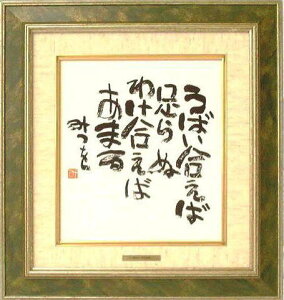 うばい合えば
足らぬ
わけ合えば
あまる
みつを